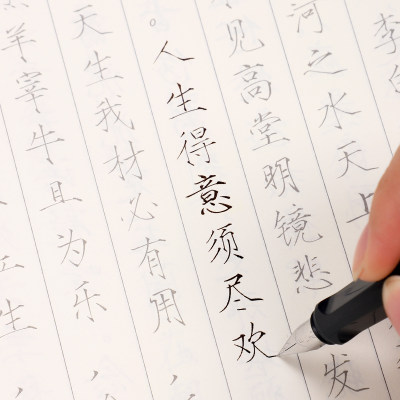 李白
河之水天上
见高堂明镜悲发
。人生得意须尽欢
天生我材必有用，
羊宰牛且为乐，
生